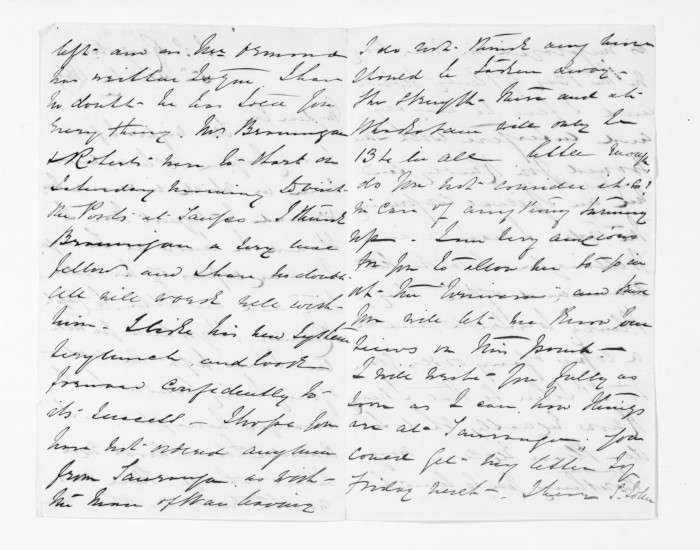 left - and as Mr. Ormond
has written to you I have
no doubt - he has told you
everything. Mr. Brannigan
& Roberts - were to start on
Saturday morning to visit
the Posts at Taupo - I think
Brannigan a very nice
fellow, and I have no doubt
all will work well with
him - I like his new system
very much, and look
forward confidently to
its success - I hope you
have not ordered any men
from Tauranga, as with
the Man of War leaving
I do not think any men
should be taken away -
the strength there and at
Whakatane will only be
134 in all little enough
do you not consider it to!
in case of anything turning
up - I am very anxious
for you to allow me to
at the and
you will let me know your
views on this point -
I will write you fully as
soon as I can, how things
are at Tauranga. You
could get my letter by
Friday next - I have St. John